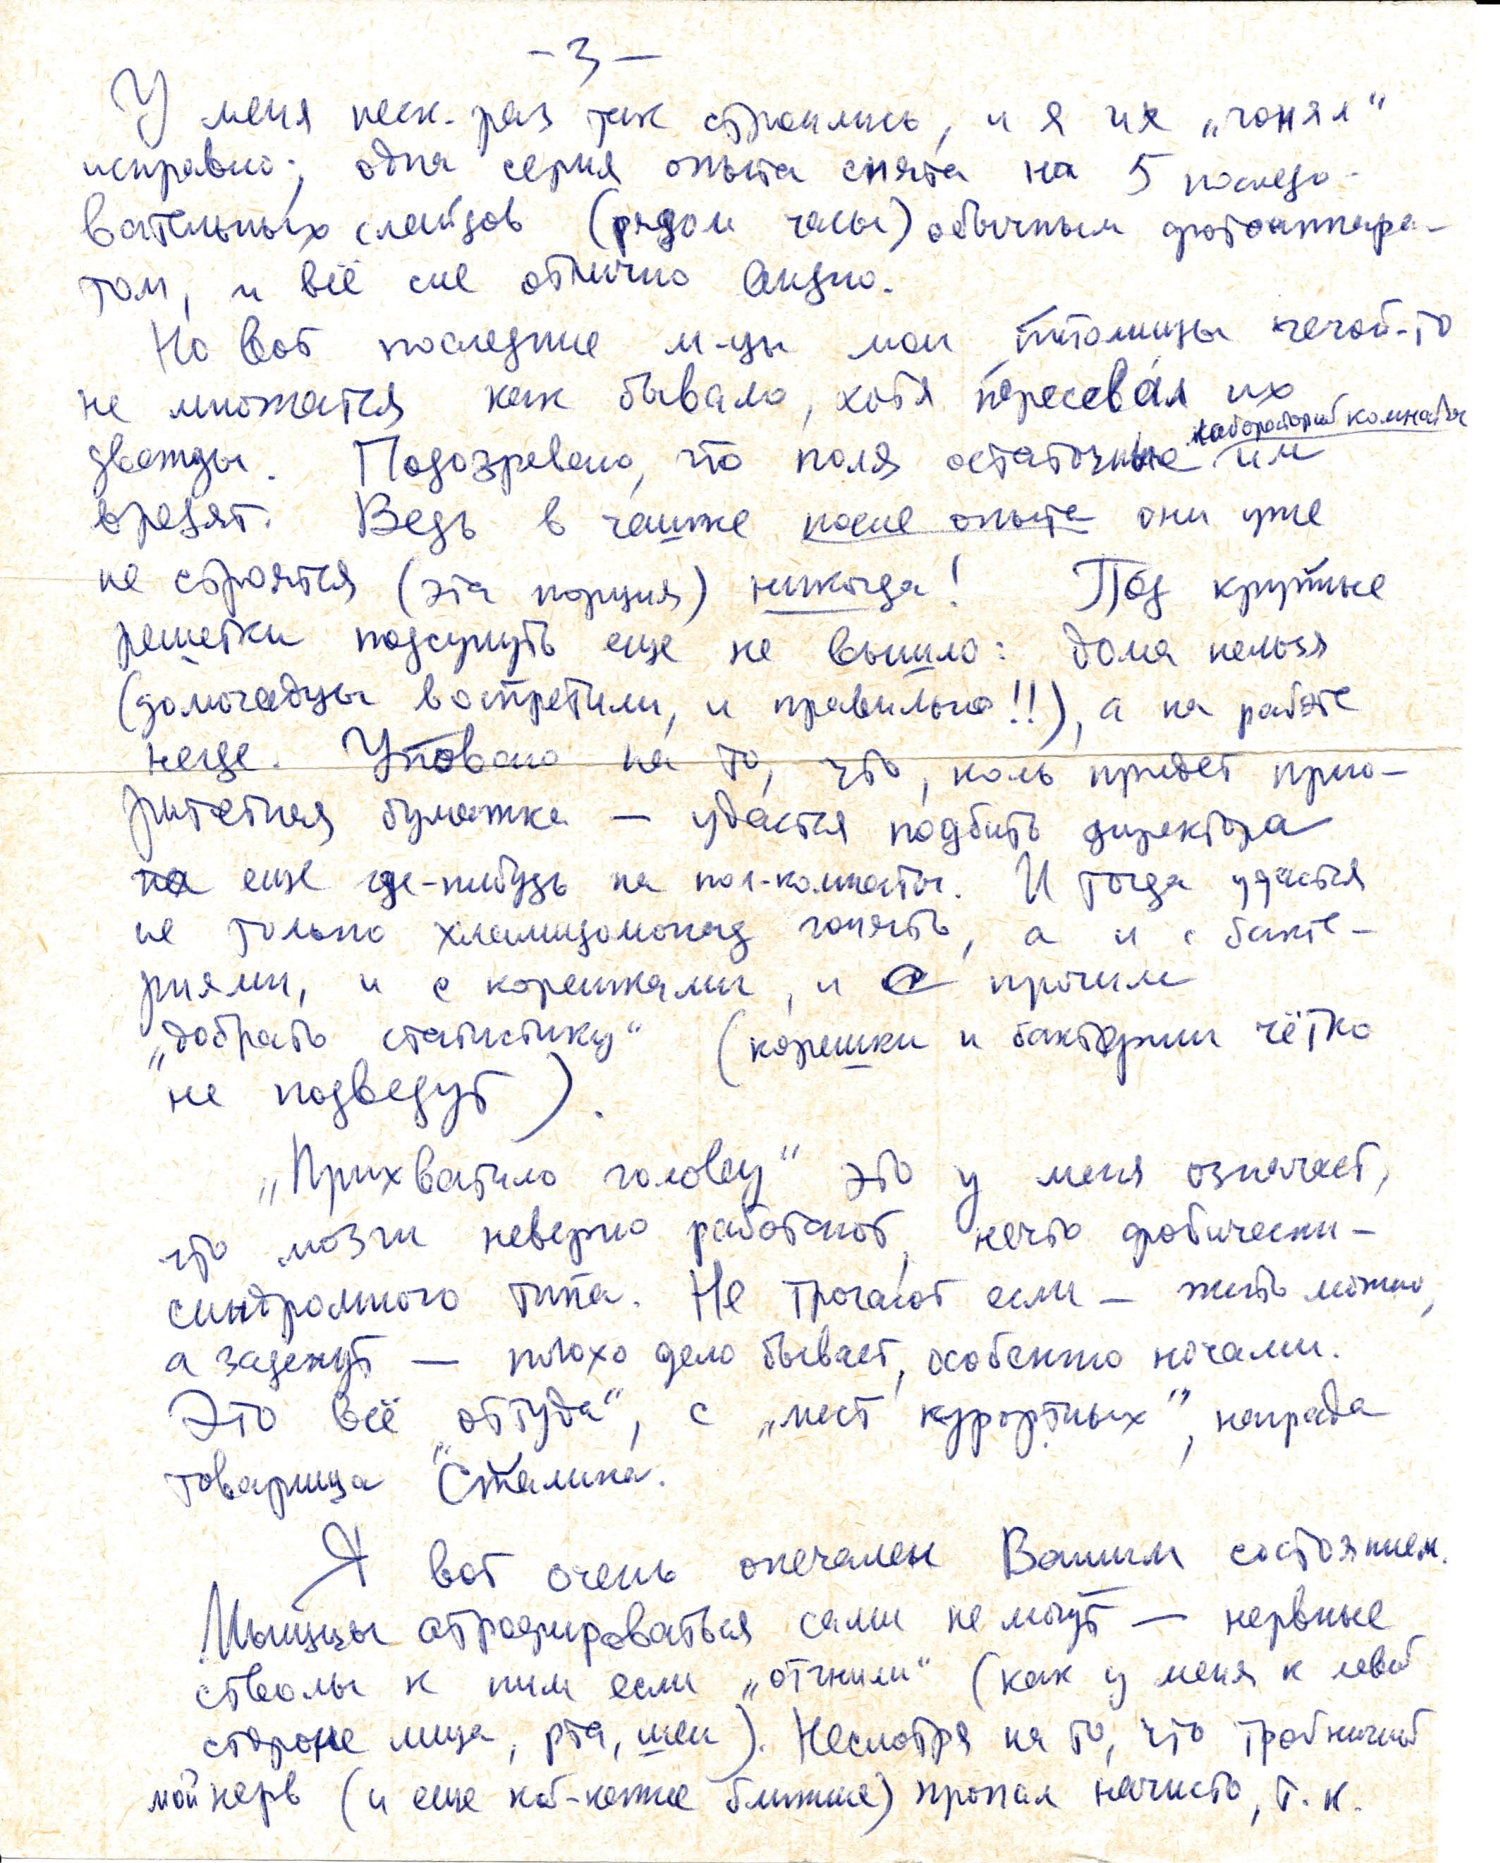 – 3 –
У меня неск. раз так строились, и я их „гонял“
исправно; одна серия опыта снята на 5 последо-
вательных слайдов (рядом часы) обычным фотоаппара-
том, и всё сие отлично видно.
Но вот последние м-цы мои питомицы чегой-то
не множатся как бывало, хотя пересевал их
дважды. Подозреваю, что поля остаточные лабораторной комнаты им
вредят. Ведь в чашке после опыта они уже
не строятся (эта порция) никогда! Под крупные
решетки подсунуть еще не вышло: дома нельзя
(домочадцы воспретили, и правильно!!), а на работе
негде. Уповаю на то, что, коль придет прио-
ритетная бумажка — удастся подбить директора
на еще где-нибудь на пол-комнаты. И тогда удастся
не только хламидомонад гонять, а и с бакте-
риями, и с корешками, и с прочим
„добрать статистику“ (корешки и бактерии чётко
не подведут).
„Прихватило голову“ это у меня означает,
что мозги неверно работают, нечто фобически-
синдромного типа. Не трогают если — жить можно,
а заденут — плохо дело бывает, особенно ночами.
Это всё „оттуда“, с „мест курортных“, награда
товарища Сталина.
Я вот очень опечален Вашим состоянием.
Мышцы атрофироваться сами не могут — нервные
стволы к ним если „отгнили“ (как у меня к левой
стороне лица, рта, шеи). Несмотря на то, что тройничный
мой нерв (и еще кой-какие ближние) пропал начисто, т. к.